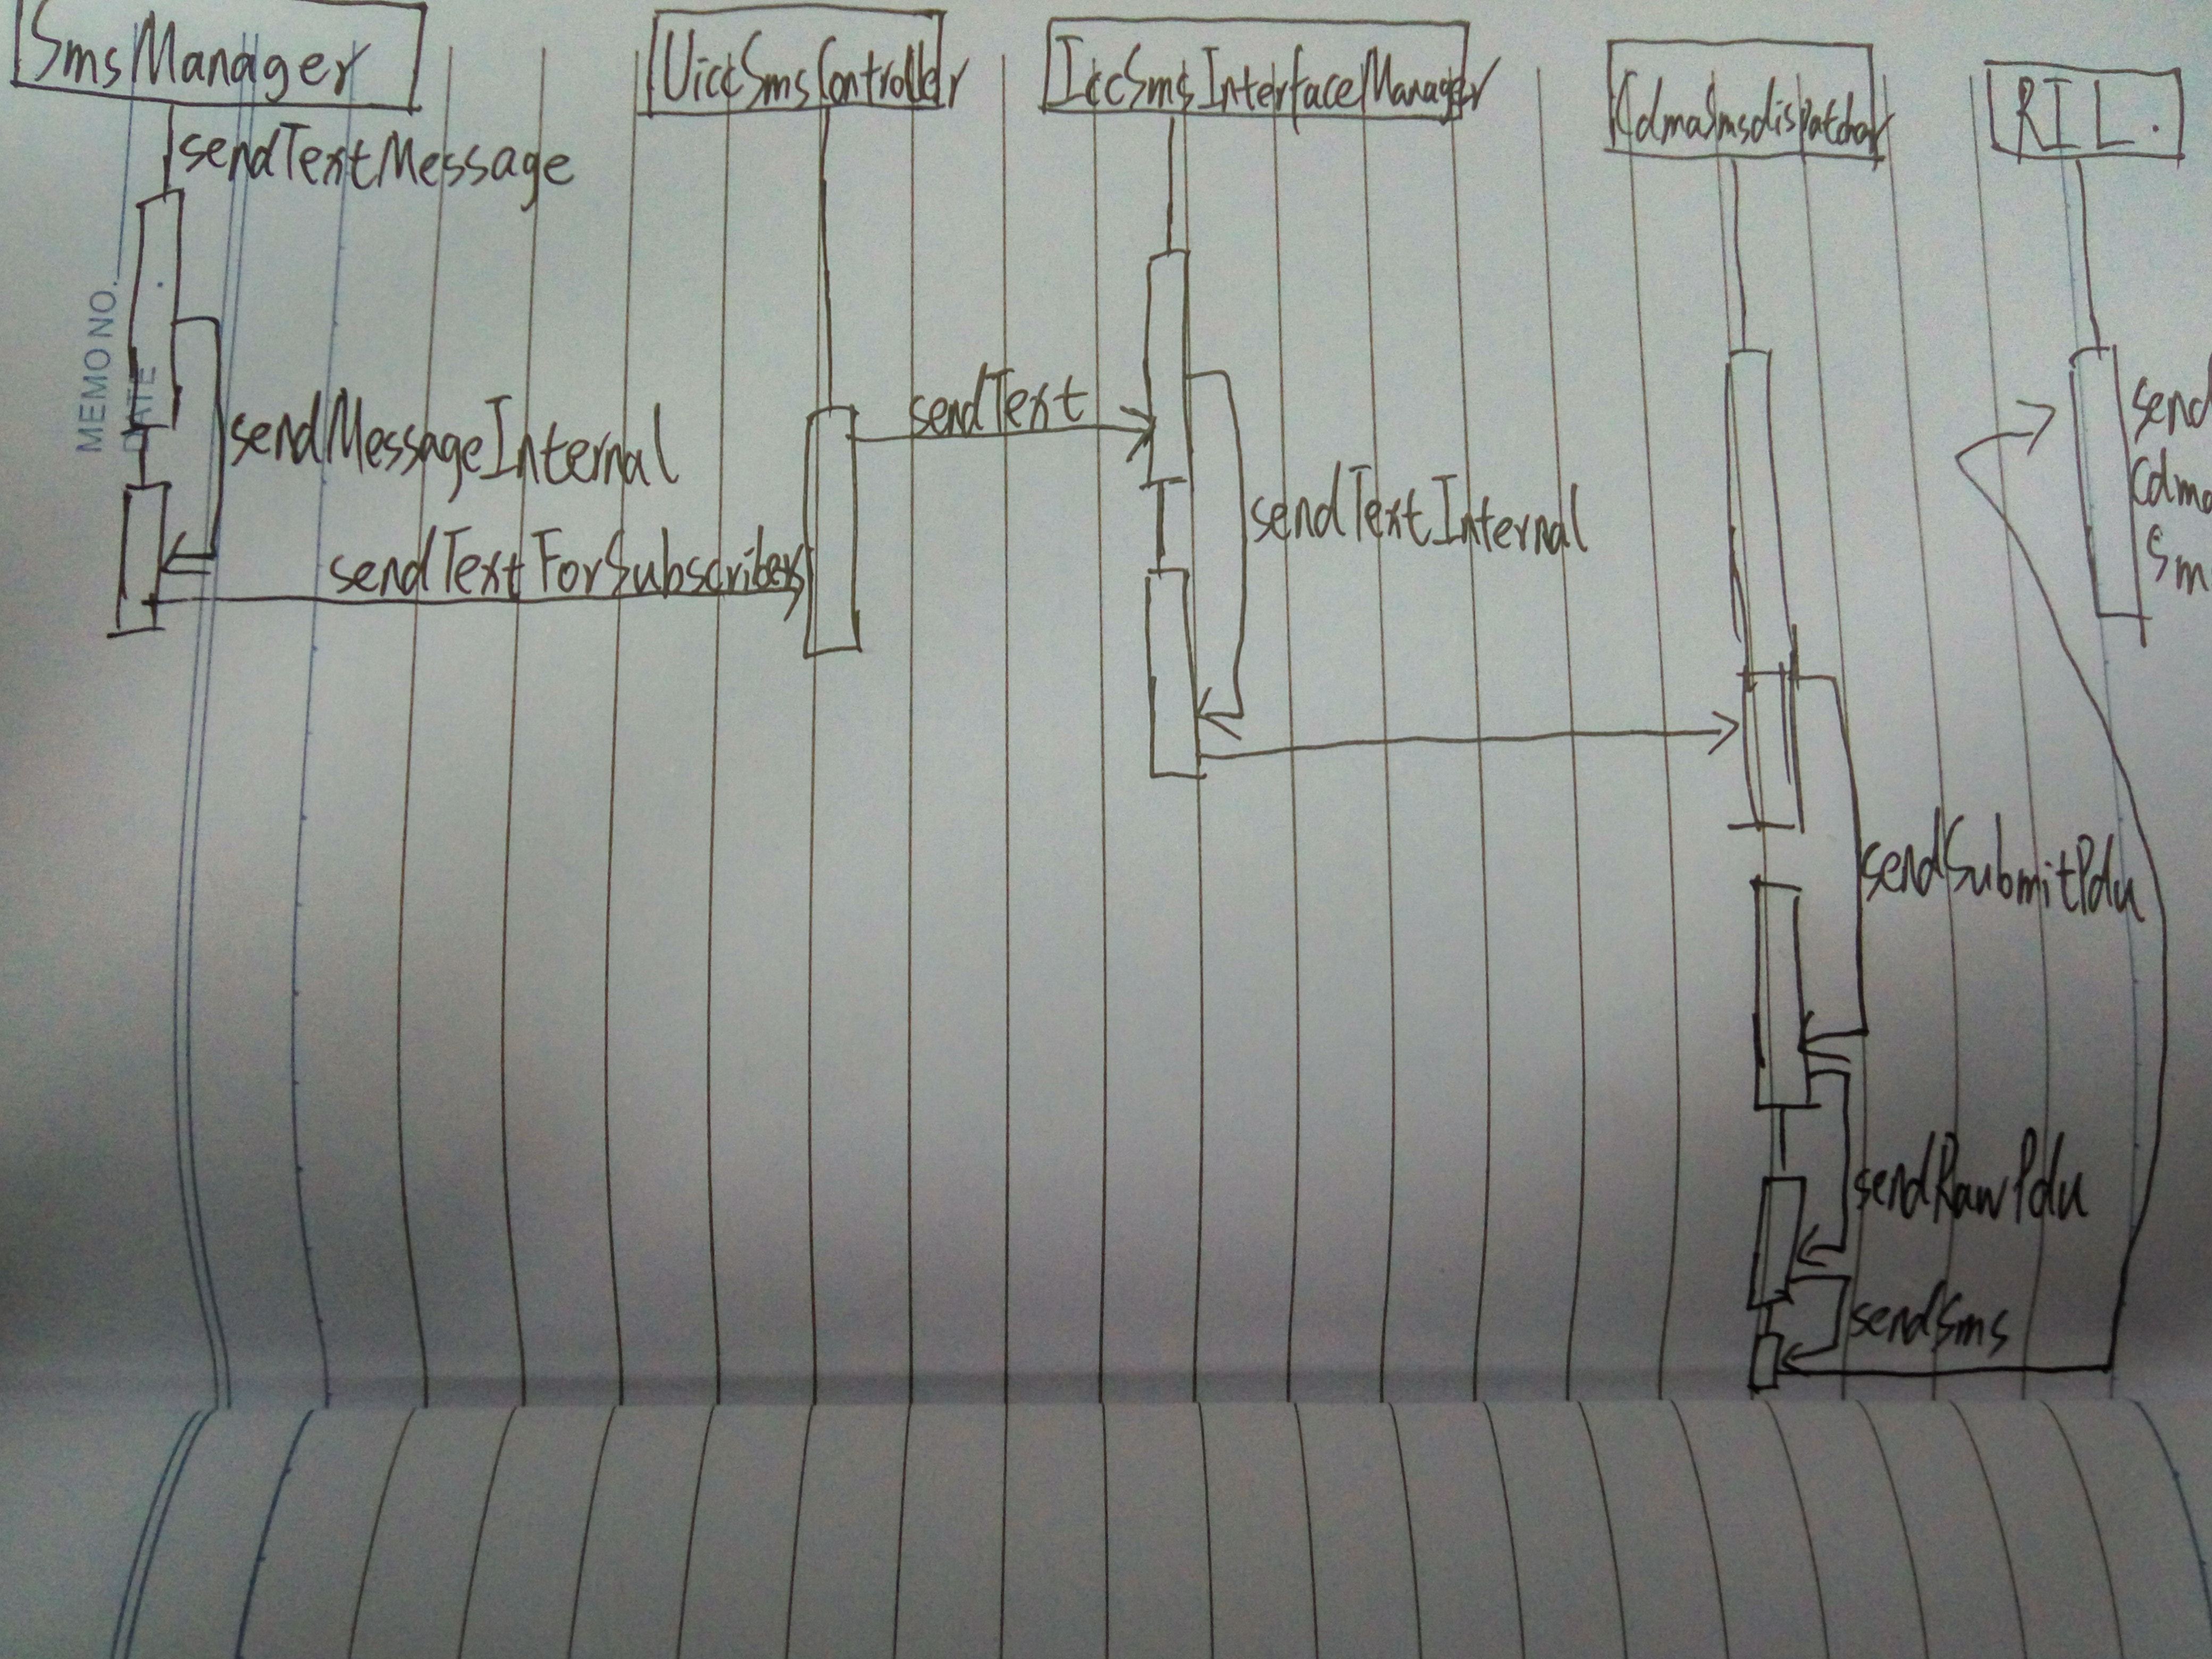 SmsManager
UiccSmsController
IccSmsInterfaceManager
CdmaSmsdispatcher
RIL.
sendTextMessage
MEMO NO.
DATE
sendMessageInternal
sendTextForSubscriber
sendText
sendTextInternal
send
Cdma
Sm
sendSubmitPdu
sendRawPdu
sendSms